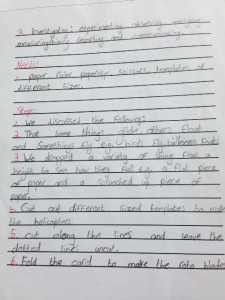 3. Investigating: experimenting, observing, analysing
measuring/timing, recording and communicating.
Needs:
1. paper, ruler, paperclip, scissors, templates of
different sizes.
Steps:
1. We discussed the following:
2. That some things glide, others float
and somethings fly e.g. birds fly, balloons float
3. We dropped a variety of things from a
height to see how they fell e.g. a flat piece
of paper and a scrunched up piece of
paper.
4. Cut out different sized templates to make
the helicopters.
5. cut along the lines and leave the
dotted lines uncut.
6. Fold the card to make the roto blades